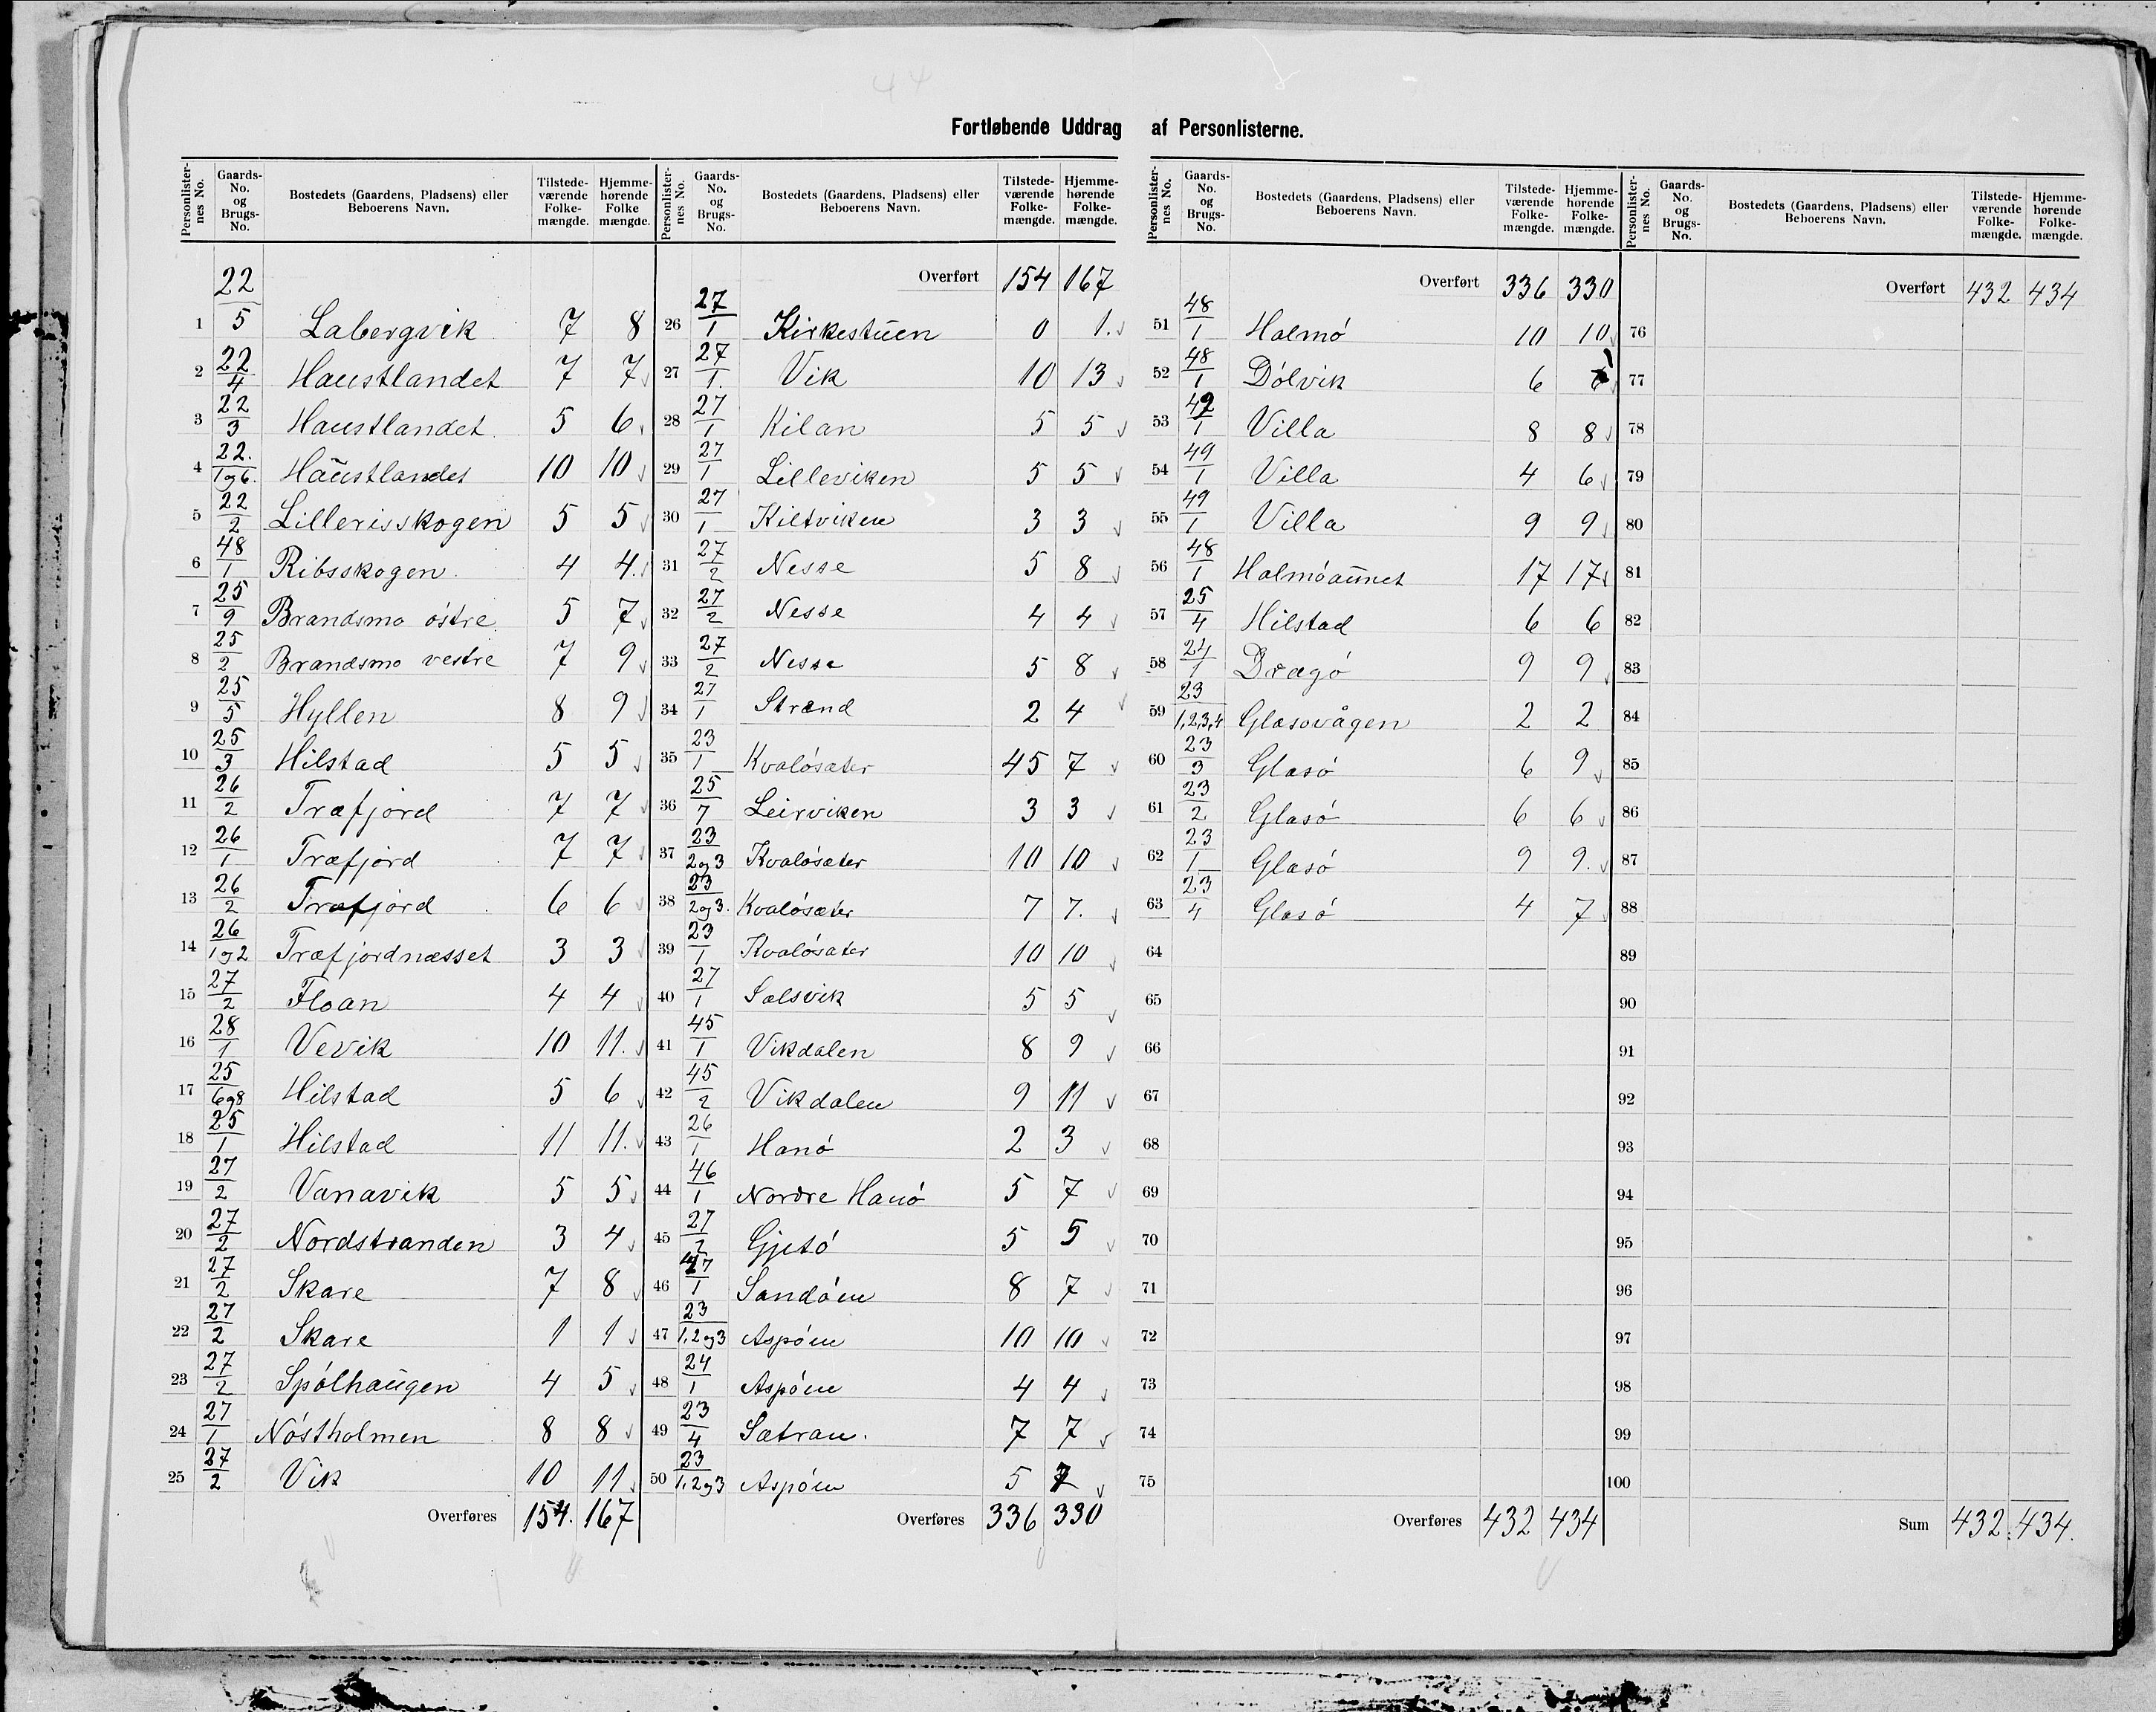 Fortløbende Uddrag af Personlisterne.
Personlisternes No. | Gaards-No. og Brugs-No. | Bostedets (Gaardens, Pladsens) eller Beboerens Navn. | Tilstedeværende Folkemængde. | Hjemmehørende Folkemængde.
1 22/5 Labergvik 7 8
2 22/4 Haustlandet 7 7
3 22/3 Haustlandet 5 6
4 22./1og6. Haustlandet 10 10
5 22/2 Lillerisskogen 5 5
6 48/1 Ribsskogen 4 4.
7 25/9 Brandsmo östre 5 7
8 25/2 Brandsmo vestre 7 9
9 25/5 Hyllen 8 9
10 25/3 Hilstad 5 5
11 26/2 Træfjord 7 7
12 26/1 Træfjord 7 7
13 26/2 Træfjord 6 6
14 26/1og2 Træfjordnæsset 3 3
15 27/2 Floan 4 4
16 28/1 Vevik 10 11.
17 25/6og8 Hilstad 5 6
18 25/1 Hilstad 11 11.
19 27/2 Vanavik 5 5
20 27/2 Nordstranden 3 4
21 27/2 Skare 7 8
22 27/2 Skare 1 1
23 27/2 Spólhaugen 4 5
24 27/1 Nóstholmen 8 8
25 27/2 Vik 10 11
Overføres 154. 167
Personlisternes No. | Gaards-No. og Brugs-No. | Bostedets (Gaardens, Pladsens) eller Beboerens Navn. | Tilstedeværende Folkemængde. | Hjemmehørende Folkemængde.
Overført 154 167
26 27/1 Kirkestuen 0 1.
27 27/1. Vik 10 13
28 27/1 Kilan 5 5
29 27/1 Lilleviken 5 5
30 27/1 Kiltviken 3 3
31 27/2 Nesse 5 8
32 27/2 Nesse 4 4
33 27/2 Nesse 5 8
34 27/1 Strand 2 4
35 23/1 Kvalósæter 45 7
36 25/7 Leirviken 3 3
37 23/2og3 Kvalósæter 10 10
38 23/2og3. Kvalósæter 7 7.
39 23/1 Kvalósæter 10 10
40 27/1 Salsvik 5 5
41 45/1 Vikdalen 8 9
42 45/2 Vikdalen 9 11
43 26/1 Hanó 2 3
44 46/1 Nordre Hanó 5 7
45 27/2 Gjetó 5 5
46 47/1 Sandóen 8 7
47 23/1,2og3 Aspóen 10 10
48 24/1 Aspóen 4 4
49 23/4 Sætran. 7 7
50 23/1,2og3 Aspóen 5 7
Overføres 336 330
Personlisternes No. | Gaards-No. og Brugs-No. | Bostedets (Gaardens, Pladsens) eller Beboerens Navn. | Tilstedeværende Folkemængde. | Hjemmehørende Folkemængde.
Overført 336 330
51 48/1 Halmó 10 10
52 48/1 Dólvik 6 6
53 49/1 Villa 8 8
54 49/1 Villa 4 6
55 49/1 Villa 9 9
56 48/1 Halmóaunet 17 17
57 25/4 Hilstad 6 6
58 24/1 Dragó 9 9
59 23/1,2,3,4 Glasovågen 2 2
60 23/3 Glasó 6 9
61 23/2 Glasó 6 6
62 23/1 Glasó 9 9.
63 23/4 Glasó 4 7
64
65
66
67
68
69
70
71
72
73
74
75
Overføres 432 434
Personlisternes No. | Gaards-No. og Brugs-No. | Bostedets (Gaardens, Pladsens) eller Beboerens Navn. | Tilstedeværende Folkemængde. | Hjemmehørende Folkemængde.
Overført 432 434
76
77
78
79
80
81
82
83
84
85
86
87
88
89
90
91
92
93
94
95
96
97
98
99
100
Sum 432. 434.